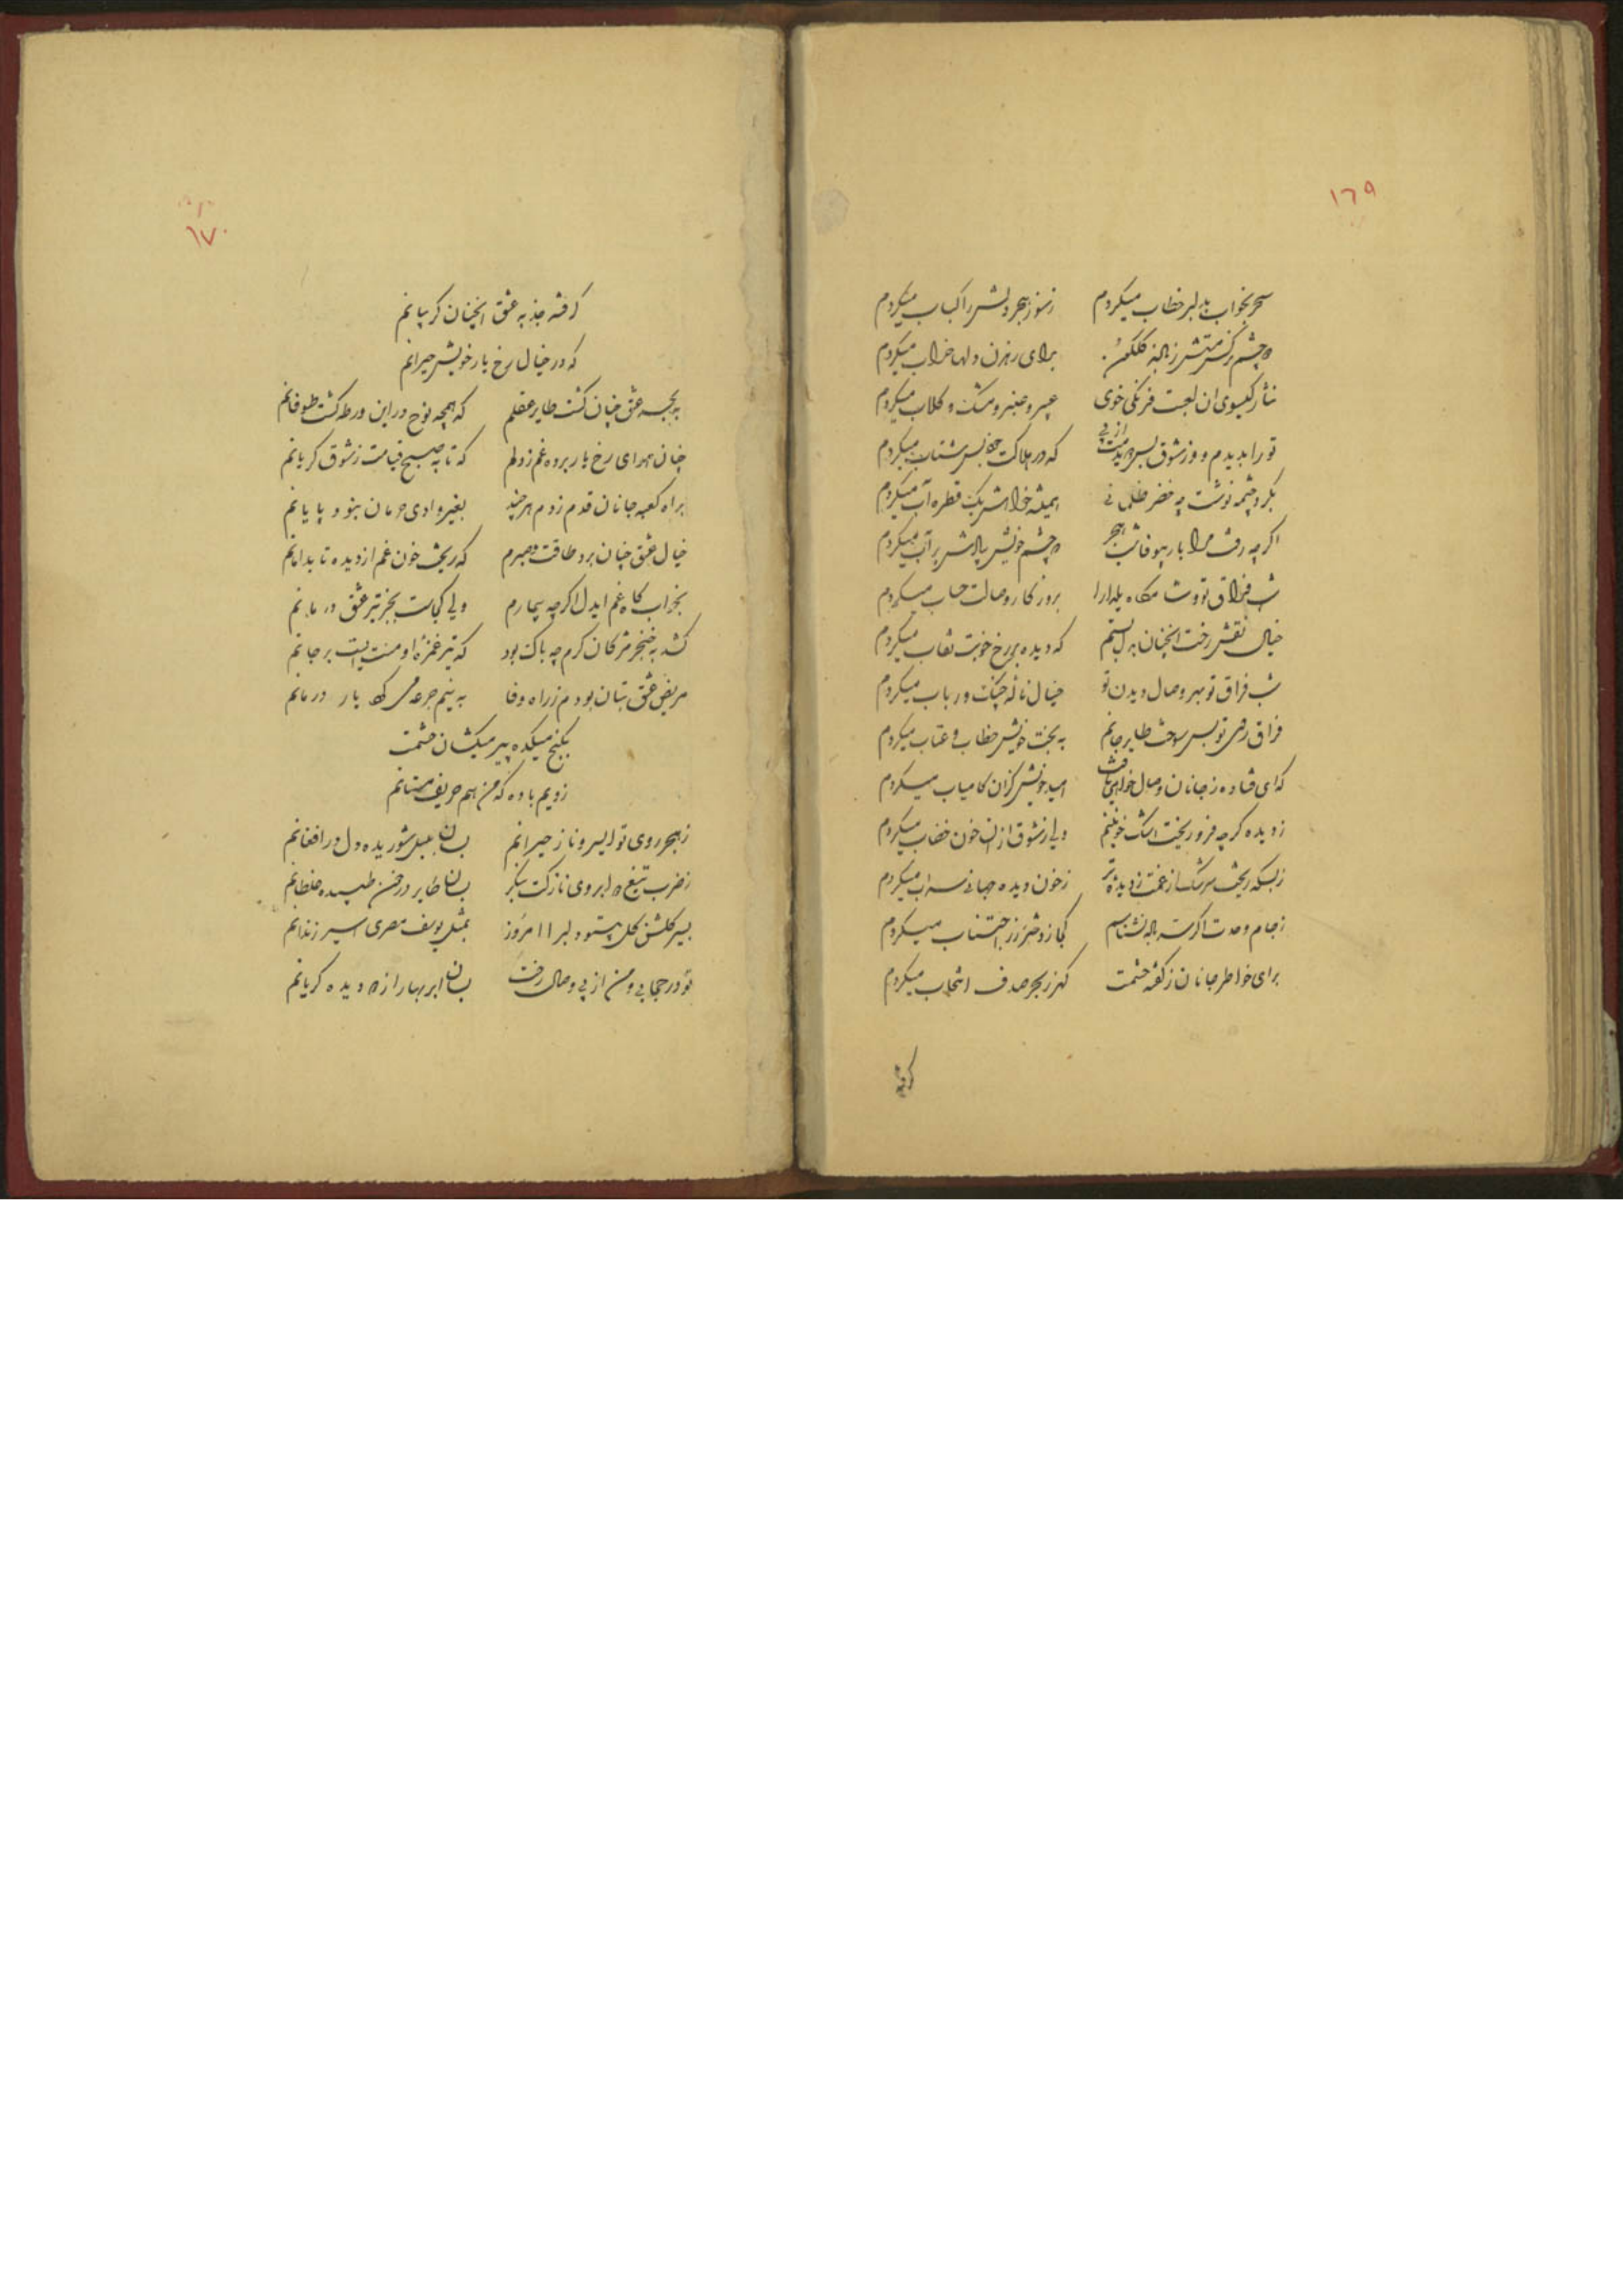 ١٦٩
سحر بخواب بدلبر خطاب میکردم زسوز هجر دلش را کباب میکردم
دو چشم نرکس مستش زباله کلکون برای رهزن دلها خراب میکردم
نثار کیسوی ان لعبت فرنکی خوی عبیر و عنبر و مشک و کلاب میکردم
تو را بدیدم و از شوق بس که در هلاکت شتاب میکردم
بکرد چشمه نوشت چه خضر ظلمانی همیشه خواهش یک قطره آب میکردم
اکرچه رفت مرا یار بیوفا شب هجر دو چشم خویش براهش پر آب میکردم
شب فراق تو یلدا را بروزکار وصالت حساب میکردم
خیال نقش رخت انچنان بدل بستم که دیده بر رخ خوبت نقاب میکردم
شب فراق تو بهر وصال دیدن تو خیال ناله چنک و رباب میکردم
فراق روی تو بس سوخت طایر جانم به بخت خویش خطاب و عتاب میکردم
که ای فتاده زجانان وصال خواهی یافت امید خویش کزان کامیاب میکردم
زدیده کرچه فرو ریخت اشک خونینم ولی زشوق ازان خون خضاب میکردم
زبسکه ریخت سرشک از غمت زدیده تر زخون دیده جهانی سراب میکردم
زجام وحدت اکر نشناسم کجا ز دختر رز اجتناب میکردم
برای خاطر جانان زکفته حشمت کهر زبحر صدف انتخاب میکردم
کرفته
١٧٠
کرفته جذبه عشق انچنان کریبانم
که در خیال رخ یار خویش حیرانم
به عشق چنان کشت طایر عقلم که همچه نوح در این ورطه کشت طوفانم
چنان هوای رخ یار برده غم زدلم که تا به صبح قیامت زشوق کریانم
براه کعبه جانان قدم زدم هرچند بغیر وادی حرمان نبود پایانم
خیال عشق چنان برد طاقت و صبرم که ریخت خون غم از دیده تا بدامانم
بخواب کاه غم ایدل اکرچه بیمارم ولی کجاست بجز تیر عشق درمانم
کشد به خنجر مژکان کرم چه باک بود که تیر غمزه او منتی است بر جانم
مریض عشق بتان بودم زراه وفا به نیم جرعه می کرد یار درمانم
بکنج میکده پیر میکشان حشمت
زدیم باده که من هم حریف مستانم
زهجر روی تو ای سرو ناز حیرانم بسان بلبل شوریده دل در افغانم
زضرب تیغ دو ابروی نازکت بنکر بسان طایر در خون طپیده غلطانم
بسیر کلشن کل دلبرا امروز بمثل یوسف مصری اسیر زندانم
تو در حجابی و من از پی وصال رخت بسان ابر بهار از دو دیده کریانم